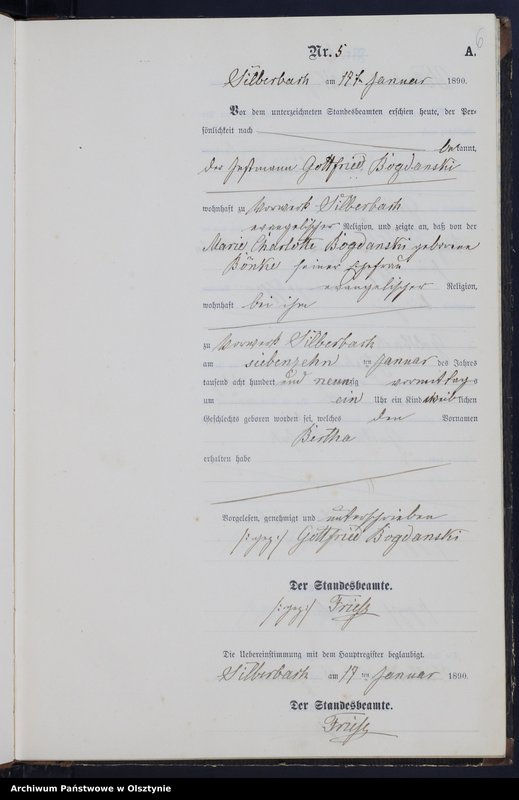 6
Nr. 5 A.
Silberbach am 17t Januar 1890.
Vor dem unterzeichneten Standesbeamten erschien heute, der Per-
sönlichkeit nach
bekannt,
der Instmann Gottfried Bogdanski
wohnhaft zu Vorwerk Silberbach
evangelischer Religion, und zeigte an, daß von der
Marie Charlotte Bogdanski geborene
Bönke seiner Ehefrau
evangelischer Religion,
wohnhaft bei ihm
zu Vorwerk Silberbach
am siebenzehn ten Januar des Jahres
tausend acht hundert und neunzig vormittags
um ein Uhr ein Kind weiblichen
Geschlechts geboren worden sei, welches den Vornamen
Bertha
erhalten habe
Vorgelesen, genehmigt und unterschrieben
/:gez:/ Gottfried Bogdanski
Der Standesbeamte.
/:gez:/ Friese
Die Uebereinstimmung mit dem Hauptregister beglaubigt.
Silberbach am 17 ten Januar 1890.
Der Standesbeamte.
Friese
Archiwum Państwowe w Olsztynie